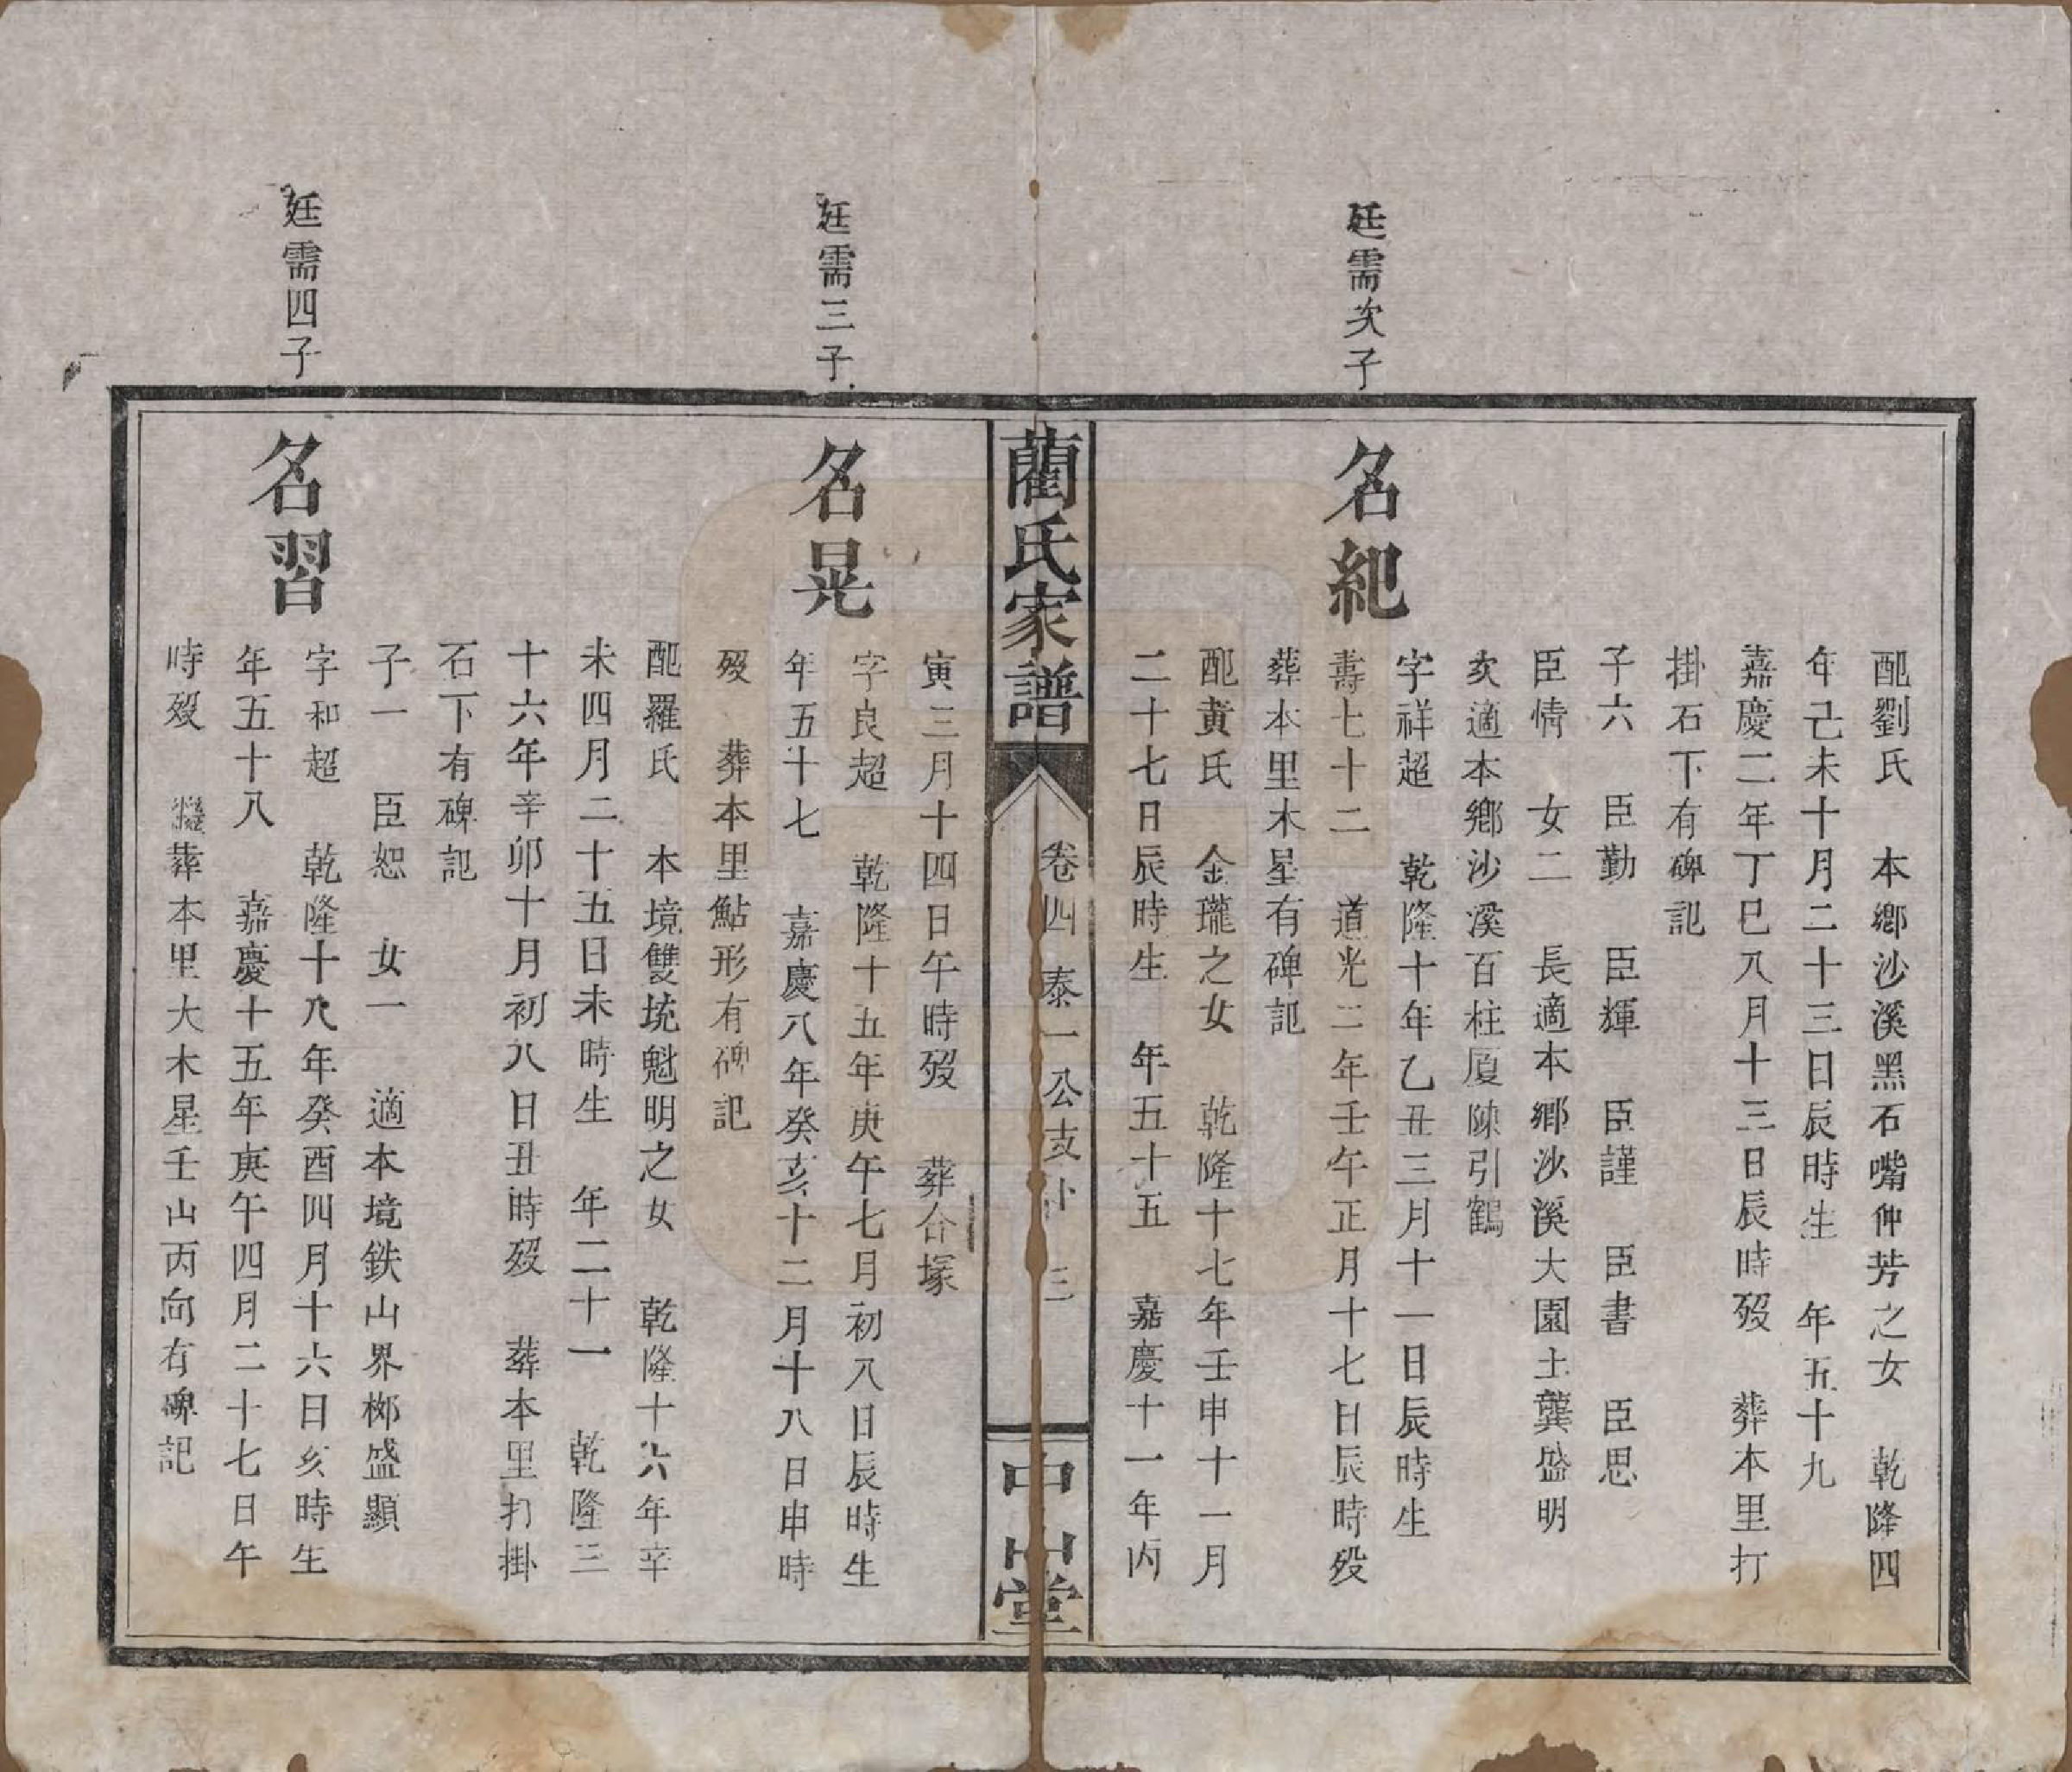 配劉氏　本鄉沙溪黑石嘴仲芳之女　乾隆四
年己未十月二十三日辰時生　年五十九
嘉慶二年丁巳八月十三日辰時歿　葬本里打
掛石下有碑記
子六　臣勤　臣輝　臣謹　臣書　臣思
臣情　女二　長適本鄉沙溪大園土龔盛明
次適本鄉沙溪百柱厦陳引鶴
廷需次子
名紀
字祥超　乾隆十年乙丑三月十一日辰時生
壽七十二　道光二年壬午正月十七日辰時歿
葬本里木星有碑記
配黃氏　金瓏之女　乾隆十七年壬申十一月
二十七日辰時生　年五十五　嘉慶十一年丙
藺氏家譜
卷四　泰一公支　三
中山堂
寅三月十四日午時歿　葬合塚
廷需三子
名晃
字良超　乾隆十五年庚午七月初八日辰時生
年五十七　嘉慶八年癸亥十二月十八日申時
歿　葬本里鮎形有碑記
配羅氏　本境雙坑魁明之女　乾隆十六年辛
未四月二十五日未時生　年二十一　乾隆三
十六年辛卯十月初八日丑時歿　葬本里打掛
石下有碑記
子一　臣恕　女一　適本境鉄山界鄉盛顯
廷需四子
名習
字和超　乾隆十八年癸酉四月十六日亥時生
年五十八　嘉慶十五年庚午四月二十七日午
時歿　葬本里大木星壬山丙向有碑記